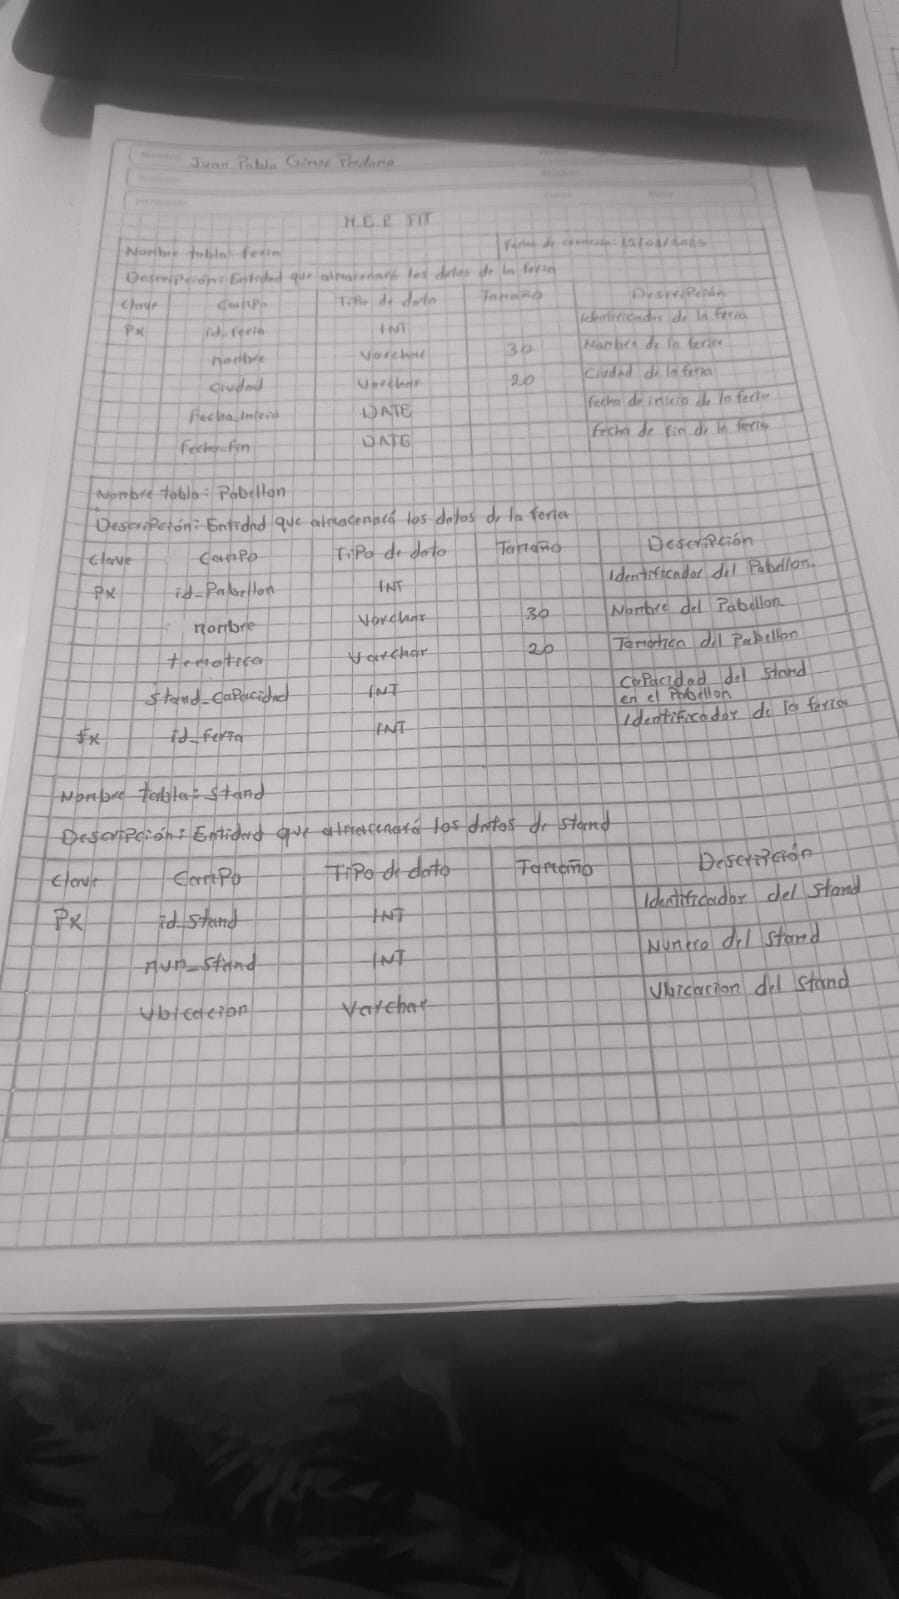 Juan Pablo
M.E.R FIT
Nombre tabla: feria Fecha de creación: 12/08/2025
Descripción: Entidad que almacenará los datos de la feria
Clave Campo Tipo de dato Tamaño Descripción
PK id_feria INT Identificador de la feria
nombre Varchar 30 Nombre de la feria
Ciudad Varchar 20 Ciudad de la feria
Fecha_inicio DATE fecha de inicio de la feria
Fecha_fin DATE fecha de fin de la feria
Nombre tabla: Pabellon
Descripción: Entidad que almacenará los datos de la feria
Clave Campo Tipo de dato Tamaño Descripción
PK id_Pabellon INT Identificador del Pabellon
nombre Varchar 30 Nombre del Pabellon
tematica Varchar 20 Tematica del Pabellon
Stand_Capacidad INT Capacidad del Stand
en el Pabellon
fk id_feria INT Identificador de la feria
Nombre tabla: Stand
Descripción: Entidad que almacenará los datos de stand
Clave Campo Tipo de dato Tamaño Descripción
PK id_Stand INT Identificador del Stand
num_Stand INT Numero del Stand
Ubicacion Varchar Ubicacion del Stand